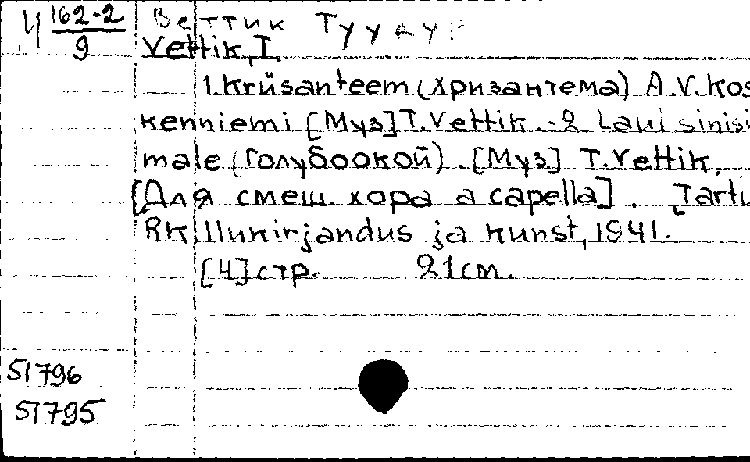 Ц 162-2/9
Веттик Туудур
Vettik, T.
1. Krüsanteem (хризантема) A.V. Kos
kenniemi [Муз] T. Vettik. - 2 Laul sinisi
male (Голубоокой). [Муз] T. Vettik.
[Для смеш. хора a capella]. Tartu
RK Ilukirjandus ja kunst, 1941.
[4] стр. 21 см.
51796
51795